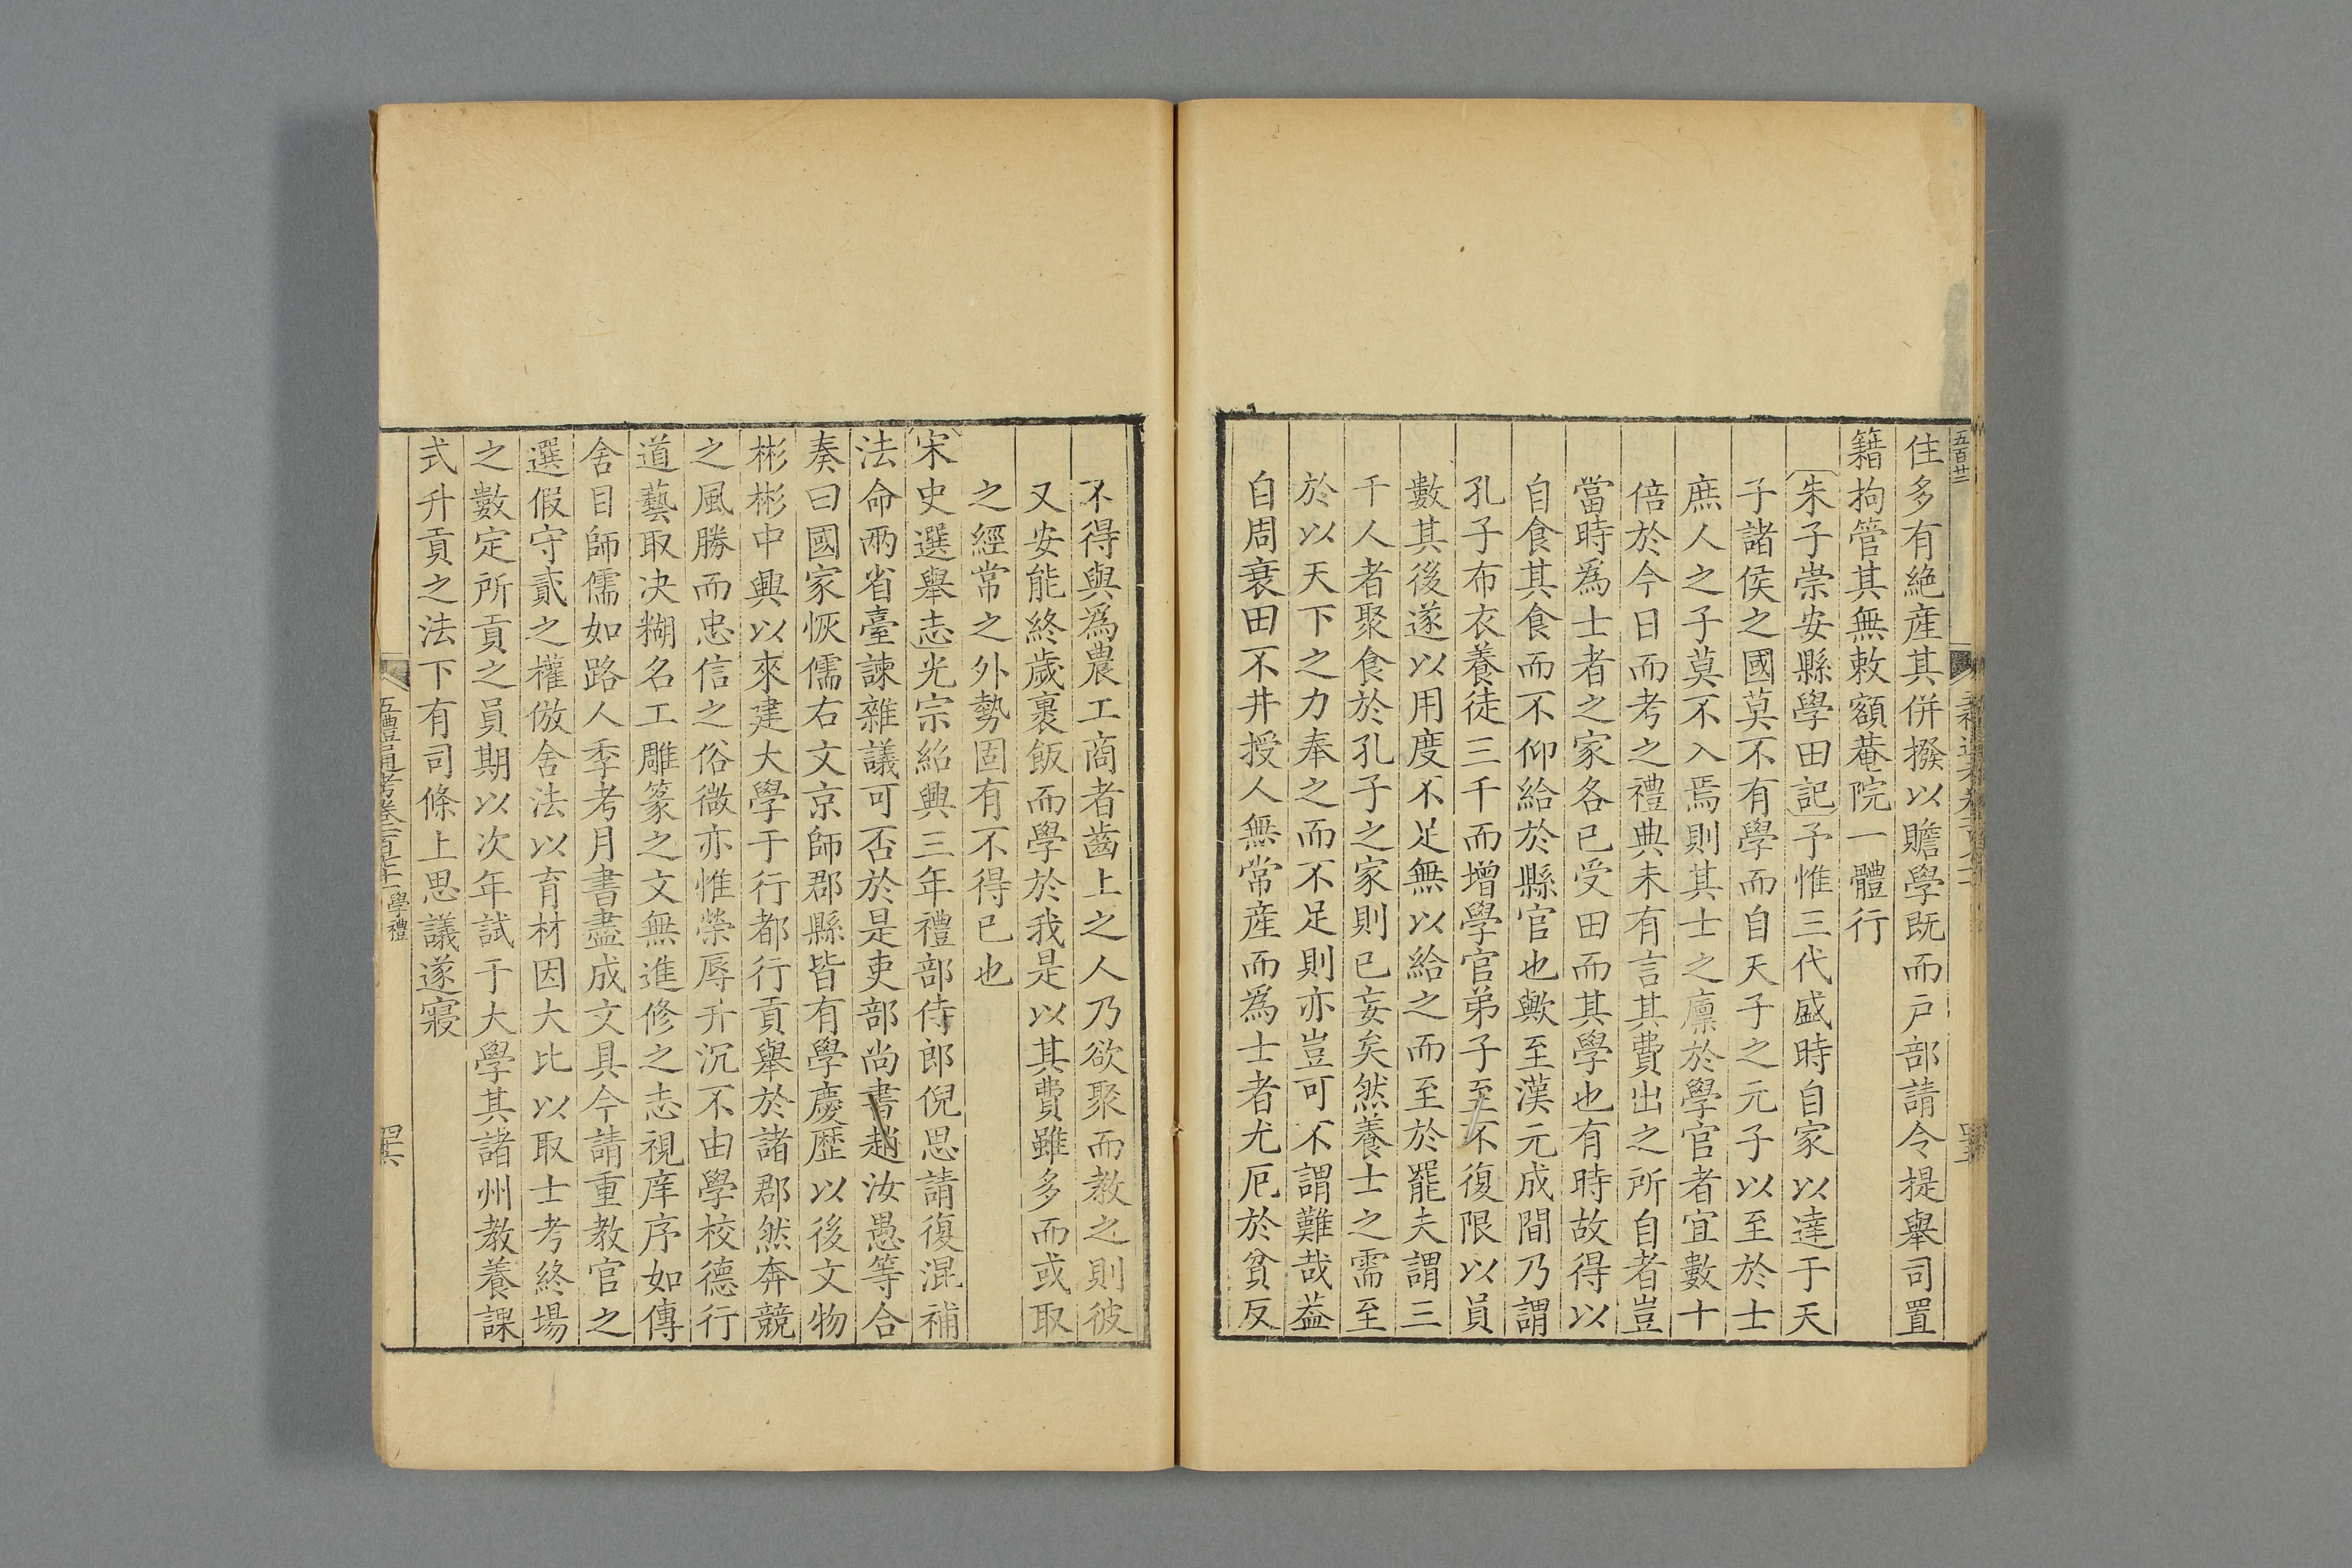 五百廿二
住多有絶產其併撥以贍學既而戸部請令提舉司置
籍拘管其無敕額菴院一體行
朱子崇安縣學田記予惟三代盛時自家以達于天
子諸侯之國莫不有學而自天子之元子以至於士
庶人之子莫不入焉則其士之廪於學官者宜數十
倍於今日而考之禮典未有言其費出之所自者豈
當時爲士者之家各已受田而其學也有時故得以
自食其食而不仰給於縣官也歟至漢元成間乃謂
孔子布衣養徒三千而增學官弟子至不復限以員
數其後遂以用度不足無以給之而至於罷夫謂三
千人者聚食於孔子之家則已妄矣然養士之需至
於以天下之力奉之而不足則亦豈可不謂難哉葢
自周衰田不井授人無常產而爲士者尤厄於貧反
不得與爲農工商者齒上之人乃欲聚而教之則彼
又安能終歲裹飯而學於我是以其費雖多而或取
之經常之外勢固有不得已也
宋史選舉志光宗紹興三年禮部侍郎倪思請復混補
法命兩省臺諫雜議可否於是吏部尚書趙汝愚等合
奏曰國家恢儒右文京師郡縣皆有學慶歷以後文物
彬彬中興以來建大學于行都行貢舉於諸郡然奔競
之風勝而忠信之俗微亦惟榮辱升沉不由學校德行
道藝取决糊名工雕篆之文無進修之志視庠序如傳
舍目師儒如路人季考月書盡成文具今請重教官之
選假守貳之權倣舍法以育材因大比以取士考終場
之數定所貢之員期以次年試于大學其諸州教養課
式升貢之法下有司條上思議遂寢
五禮通考卷一百七十一 學禮